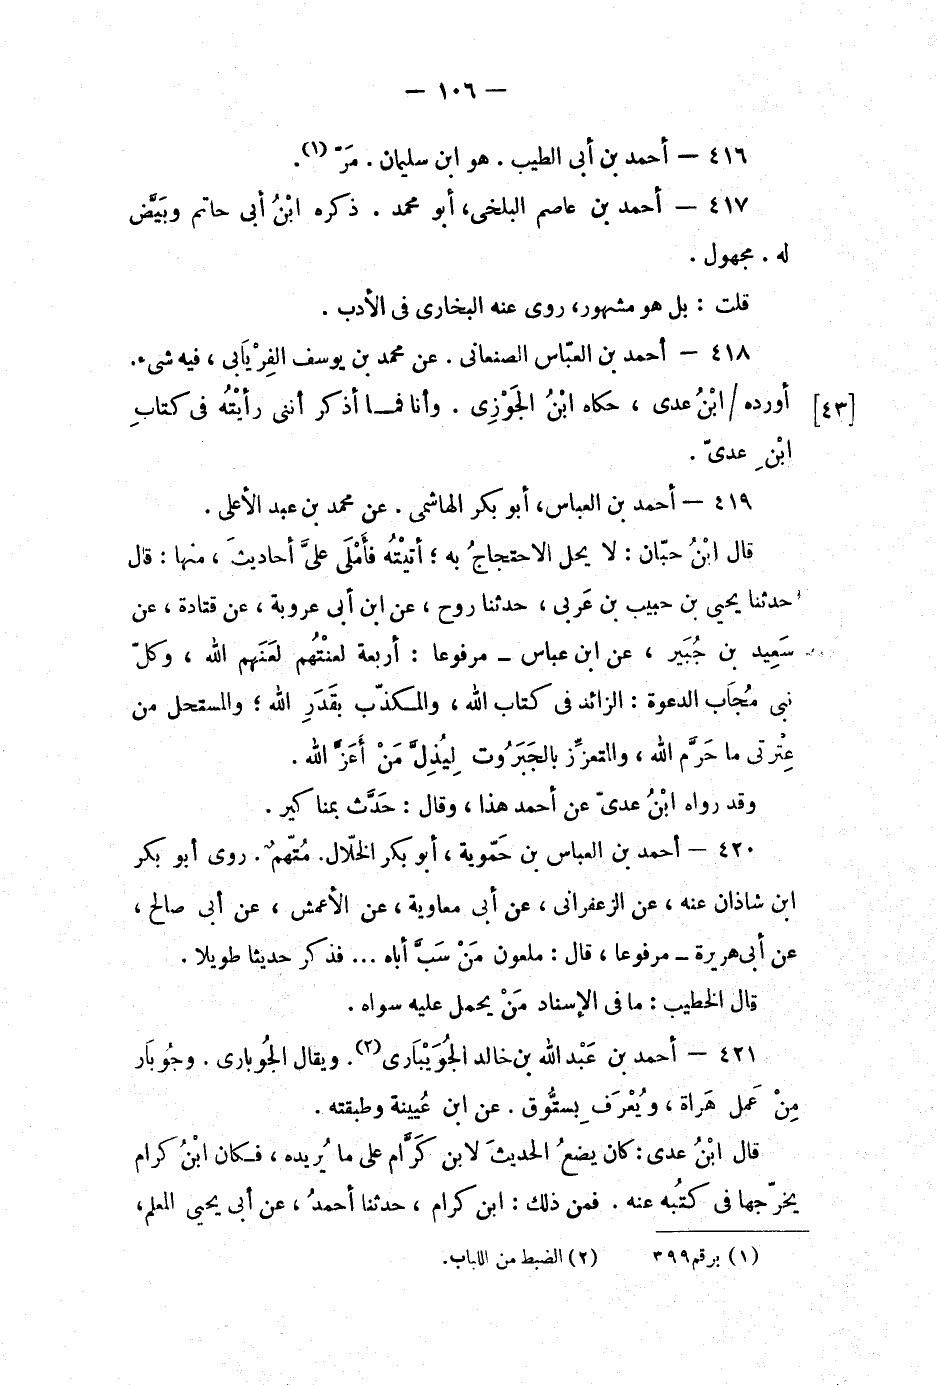 — ١٠٦ —
٤١٦ — أحمد بن أبى الطيب . هو ابن سليمان . مَرّ (١).
٤١٧ — أحمد بن عاصم البلخى، أبو محمد . ذكره ابْنُ أبى حاتم وبَيَّض
له . مجهول .
قلت : بل هو مشهور، روى عنه البخارى فى الأدب .
٤١٨ — أحمد بن العبّاس الصنعانى . عن محمد بن يوسف الفِرْيَابى ، فيه شىء.
[٤٣] أورده / ابْنُ عدى ، حكاه ابْنُ الجَوْزِى . وأنا فمـا أذكر أننى رأيْتُه فى كتابِ
ابْنِ عدىّ .
٤١٩ — أحمد بن العباس، أبو بكر الهاشمى . عن محمد بن عبد الأعلى .
قال ابْنُ حبّان : لا يحل الاحتجاجُ به ؛ أتيْتُه فأَمْلَى علىَّ أحاديثَ ، منها : قال
حدثنا يحيى بن حبيب بن عَربى ، حدثنا روح ، عن ابن أبى عروبة ، عن قتادة ، عن
سَعِيد بن جُبَير ، عن ابن عباس ـ مرفوعا : أربعة لعنْتُهم لعَنَهم الله ، وكلّ
نبى مُجَاب الدعوة : الزائد فى كتاب الله ، والمكذّب بقَدَرِ الله ؛ والمستحل من
عِتْرتى ما حَرَّم الله ، والمتعزِّز بالجَبَرُوت لِيُذِلَّ مَنْ أَعَزَّ الله .
وقد رواه ابْنُ عدىّ عن أحمد هذا ، وقال : حَدَّث بمناكير .
٤٢٠ — أحمد بن العباس بن حَمّوية ، أبو بكر الخلّال. مُتّهمٌ . روى أبو بكر
ابن شاذان عنه ، عن الزعفرانى ، عن أبى معاوية ، عن الأعمش ، عن أبى صالح ،
عن أبى هريرة ـ مرفوعا ، قال : ملعون مَنْ سَبَّ أباه ... فذكر حديثا طويلا .
قال الخطيب : ما فى الإسناد مَنْ يحمل عليه سواه .
٤٢١ — أحمد بن عَبْد الله بن خالد الجُوَيْبَارى (٢). ويقال الجُوبارى . وجُوبَار
مِنْ عَمل هَراة ، ويُعْرَف بِستُّوق . عن ابن عُيينة وطبقته .
قال ابْنُ عدى : كان يضعُ الحديثَ لابن كَرَّام على ما يُريده ، فـكان ابْنُ كرام
يخرّجها فى كتُبه عنه . فمن ذلك : ابن كرام ، حدثنا أحمدُ ، عن أبى يحيى المعلم،
(١) برقم ٣٩٩ (٢) الضبط من اللباب.